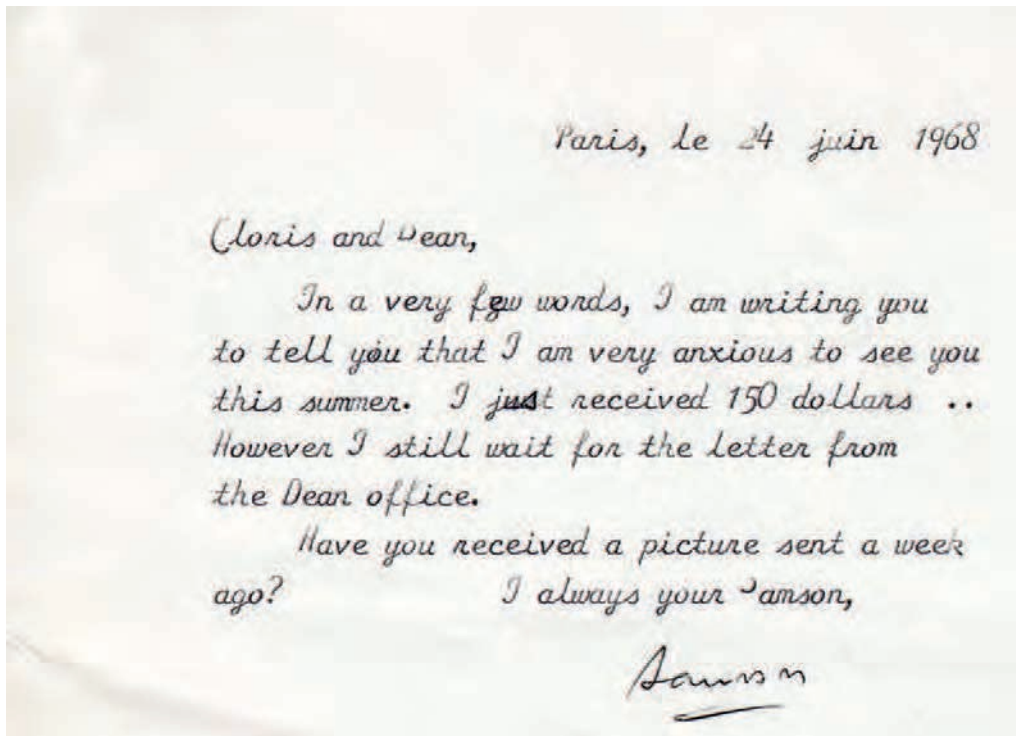 Paris, le 24 juin 1968
Cloris and Dean,
In a very few words, I am writing you
to tell you that I am very anxious to see you
this summer. I just received 150 dollars ..
However I still wait for the letter from
the Dean office.
Have you received a picture sent a week
ago? I always your Samson,
Samson